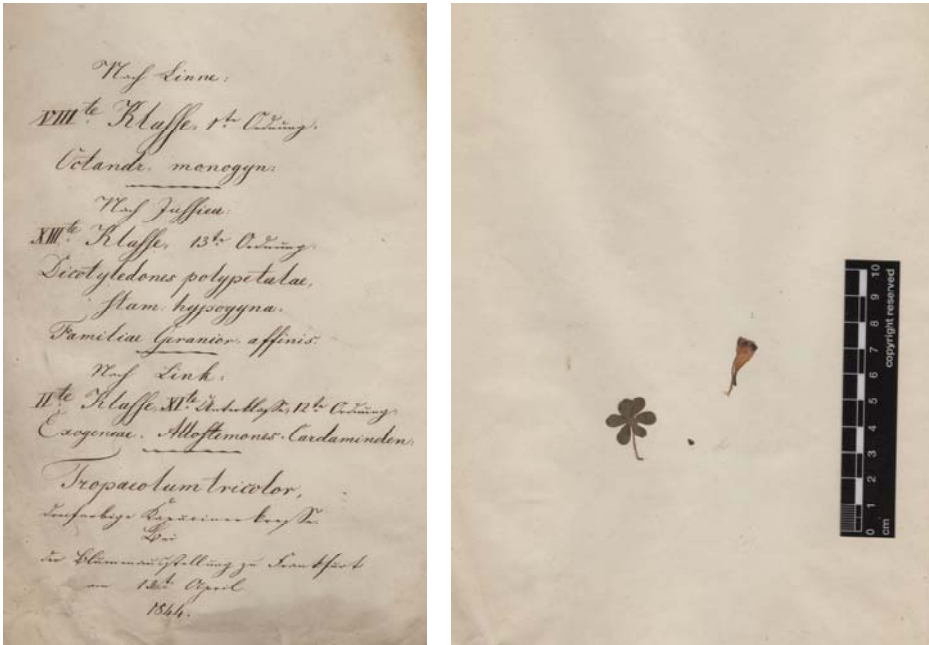 Nach Linne:
VIII.te Klasse, 1te Ordnung.
Octandr. monogyn.
Nach Jussieu:
XIII.te Klasse, 13te Ordnung.
Dicotyledones polypetalae,
stam. hypogyna.
Familiae Geranior. affinis.
Nach Link:
II.te Klasse, XI.te Unterklasse, 12te Ordnung
Exogeneae. Allostemones. Cardamindeen.
Tropaeolum tricolor,
dreifarbige Kapuzinerkresse.
Bei
der Blumenausstellung zu Frankfurt
am April
1844.
0 1 2 3 4 5 6 7 8 9 10
cm
copyright reserved